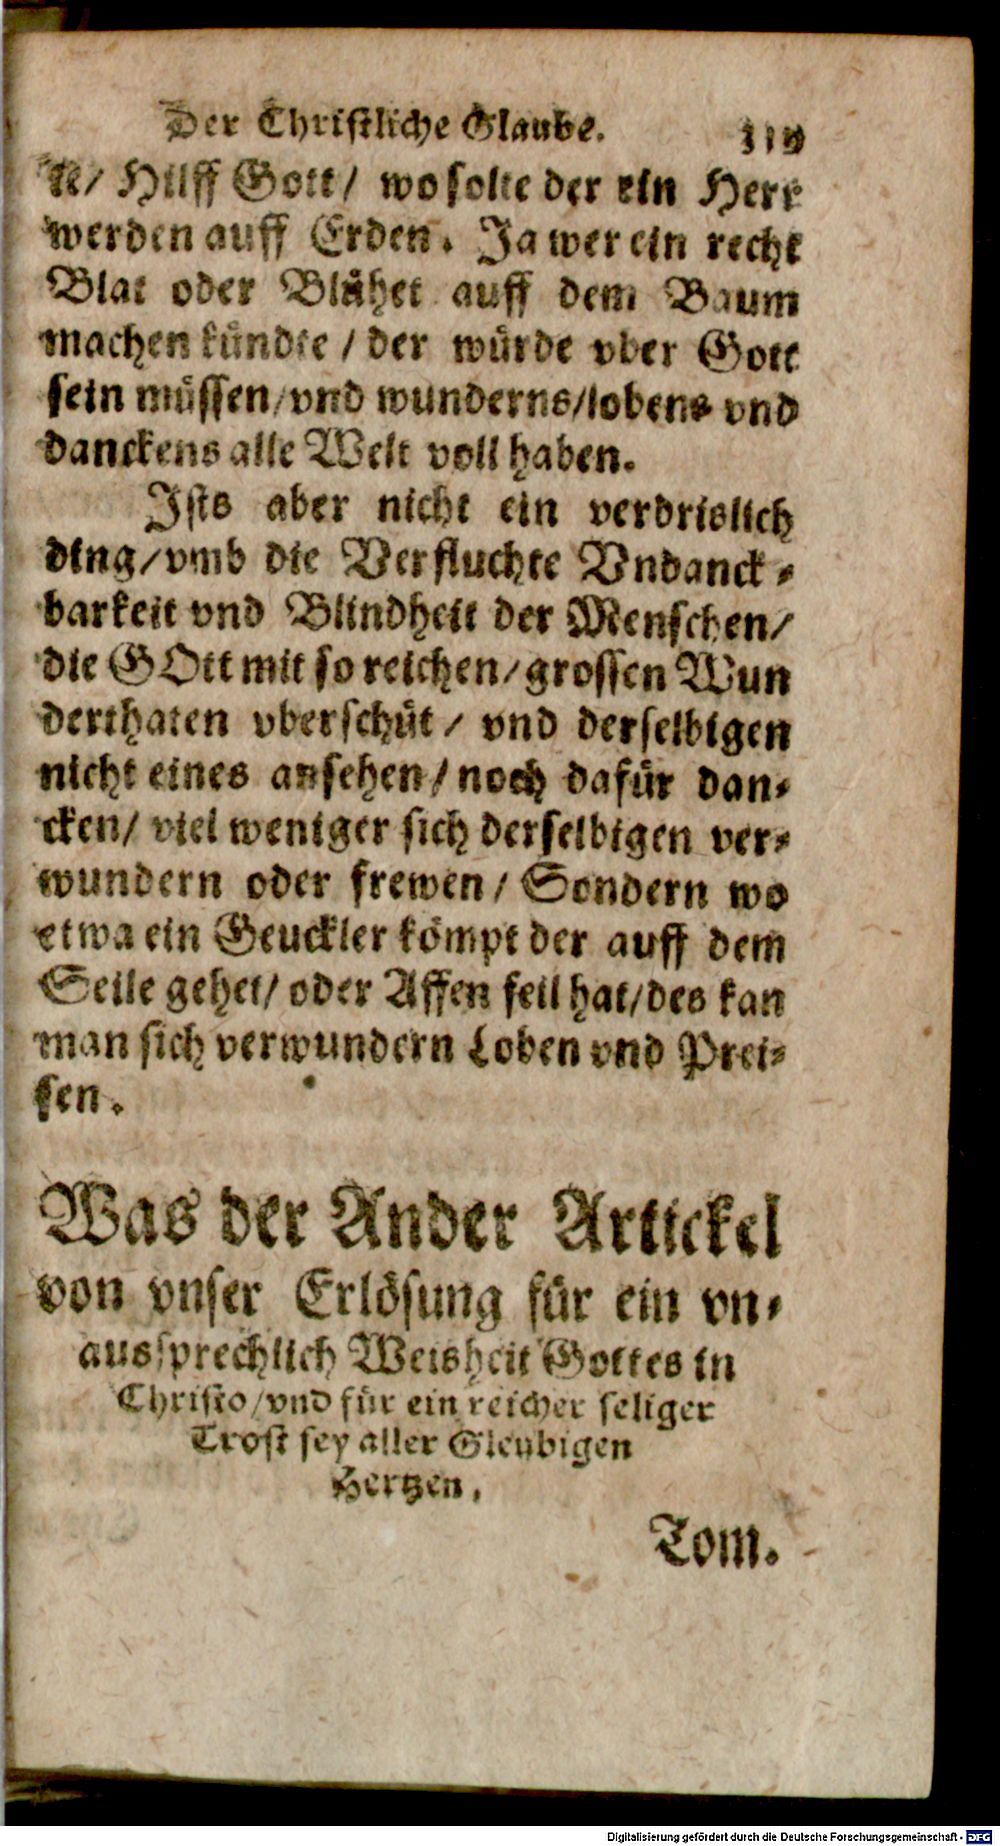 Der Christliche Glaube. 119
te/ Hilff Gott/ wo solte der ein Herr
werden auff Erden. Ja wer ein recht
Blat oder Blühet auff dem Baum
machen kündte / der würde vber Gott
sein müssen/vnd wunderns/lobens vnd
danckens alle Welt voll haben.
Ists aber nicht ein verdrislich
ding/vmb die Verfluchte Vndanck-
barkeit vnd Blindheit der Menschen/
die GOtt mit so reichen/grossen Wun
derthaten vberschüt / vnd derselbigen
nicht eines ansehen/noch dafür dan-
cken/ viel weniger sich derselbigen ver-
wundern oder frewen / Sondern wo
etwa ein Geuckler kömpt der auff dem
Seile gehet/ oder Affen feil hat/des kan
man sich verwundern Loben vnd Prei-
sen.
Was der Ander Artickel
von vnser Erlösung für ein vn-
aussprechlich Weisheit Gottes in
Christo/vnd für ein reicher seliger
Trost sey aller Gleubigen
Hertzen.
Tom.
Digitalisierung gefördert durch die Deutsche Forschungsgemeinschaft - DFG